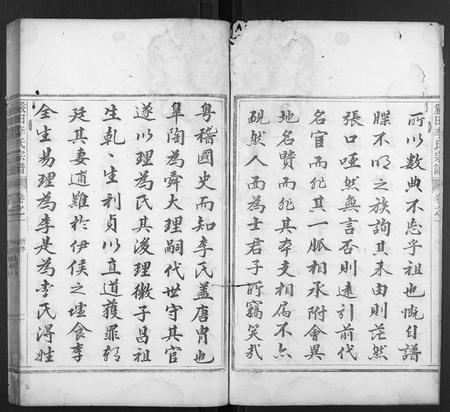 所以數典不忘乎祖也慨自譜
牒不明之族詢其来由則茫然
張口啞然無言否則遠引前代
名官而非其一脈相承附會異
地名賢而非其本支相屬不亦
硯然人面為士君子所竊笑哉
粤稽國史而知李氏蓋唐冑也
臯陶為舜大理嗣代世守其官
遂以理為氏其後理徵子昌祖
生乾乾生利貞以直道獲罪
廷其妻逋難於伊侯之墟食李
全生易理為李是為李氏得姓
嚴田李氏宗譜
卷之一
A